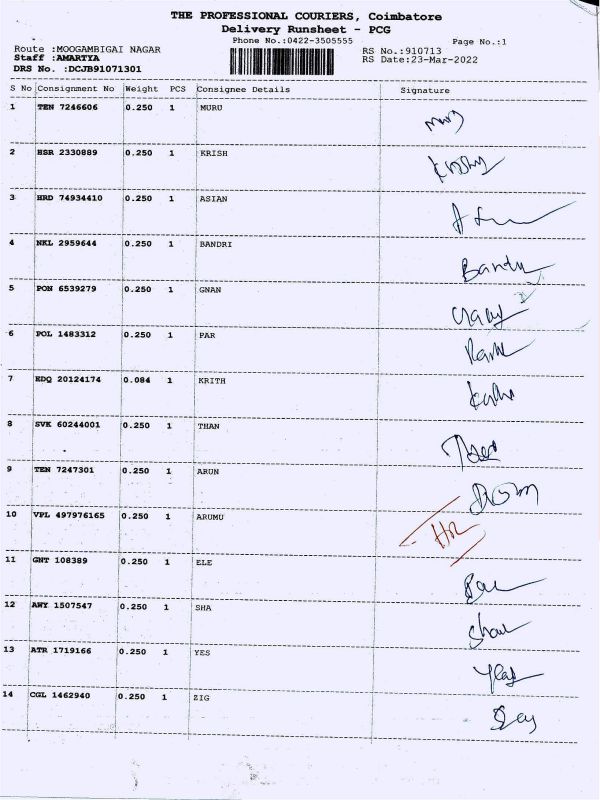 THE PROFESSIONAL COURIERS, Coimbatore
Delivery Runsheet - PCG
Phone No.:0422-3505555 Page No.:1
Route :MOOGAMBIGAI NAGAR RS No.:910713
Staff :AMARTYA RS Date:23-Mar-2022
DRS No. :DCJB91071301
S No Consignment No Weight PCS Consignee Details Signature
1 TEN 7246606 0.250 1 MURU
2 HSR 2330889 0.250 1 KRISH
3 HRD 74934410 0.250 1 ASIAN
4 NKL 2959644 0.250 1 BANDRI
5 PON 6539279 0.250 1 GNAN
6 POL 1483312 0.250 1 PAR
7 EDQ 20124174 0.084 1 KRITH
8 SVK 60244001 0.250 1 THAN
9 TEN 7247301 0.250 1 ARUN
10 VPL 497976165 0.250 1 ARUMU
11 GNT 108389 0.250 1 ELE
12 AWY 1507547 0.250 1 SHA
13 ATR 1719166 0.250 1 YES
14 CGL 1462940 0.250 1 ZIG